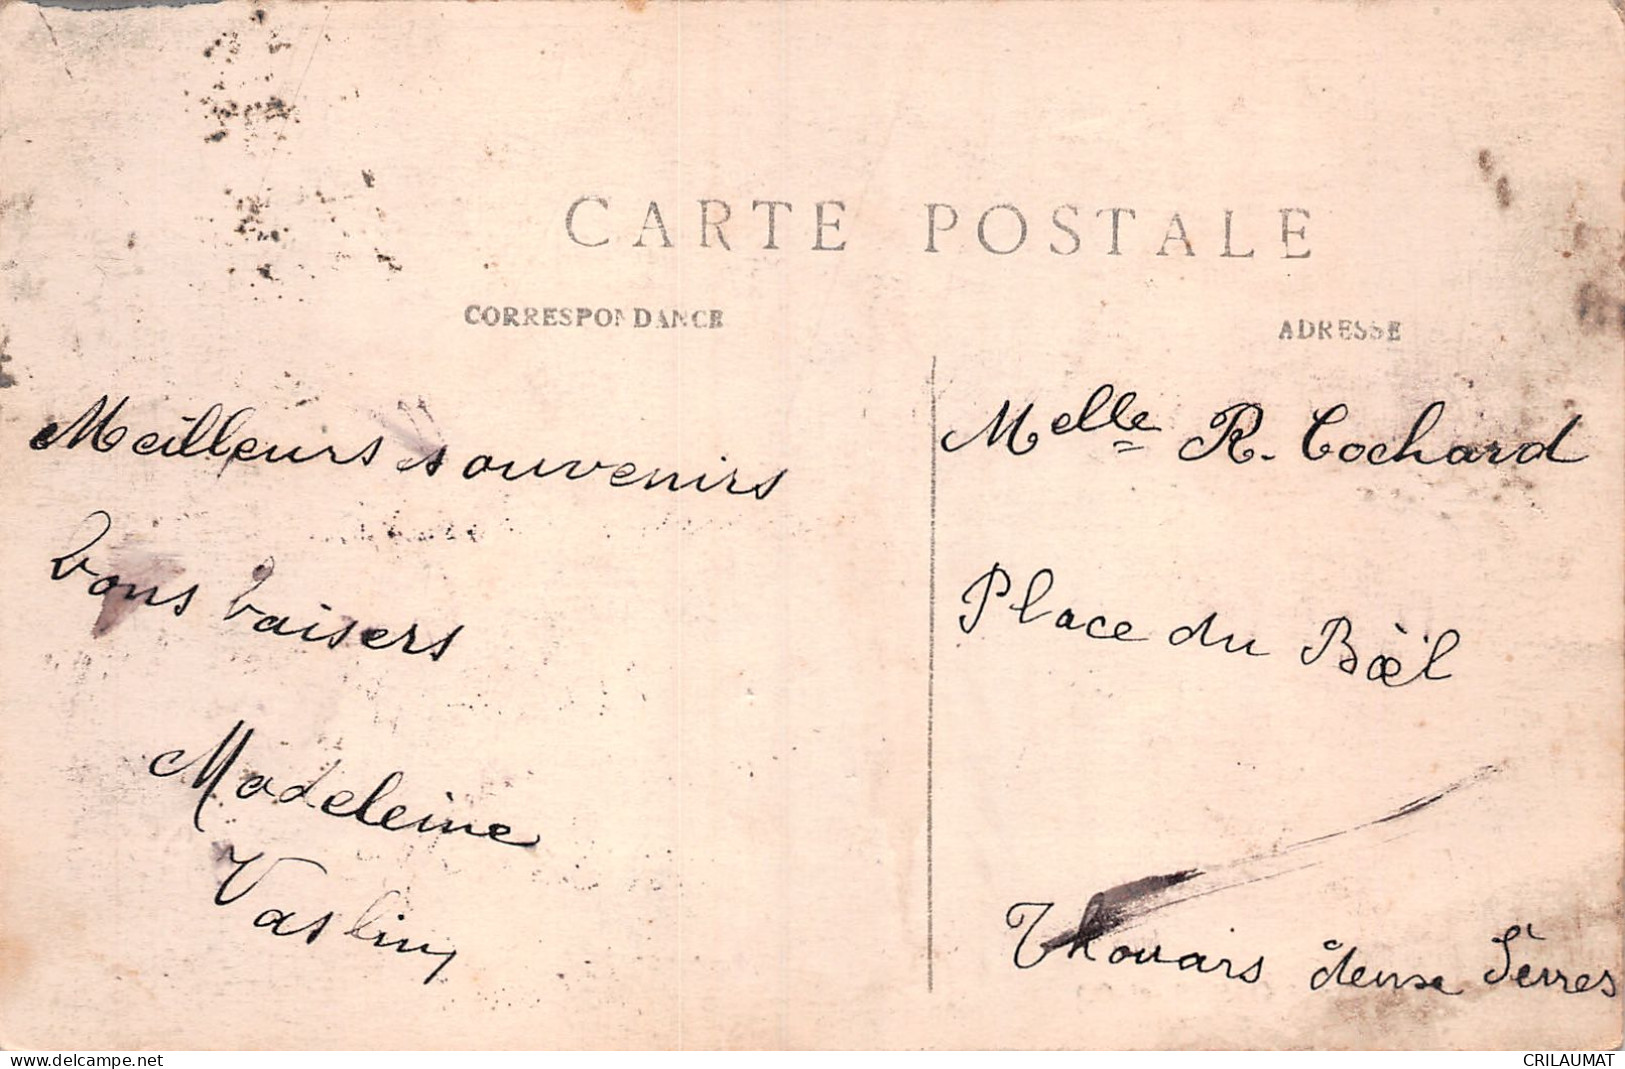 CARTE POSTALE
CORRESPONDANCE
ADRESSE
Meilleurs souvenirs
bons baisers
Madeleine
Vaslin
Melle R. Cochard
Place du Boël
Thouars deux Sèvres
www.delcampe.net
CRILAUMAT